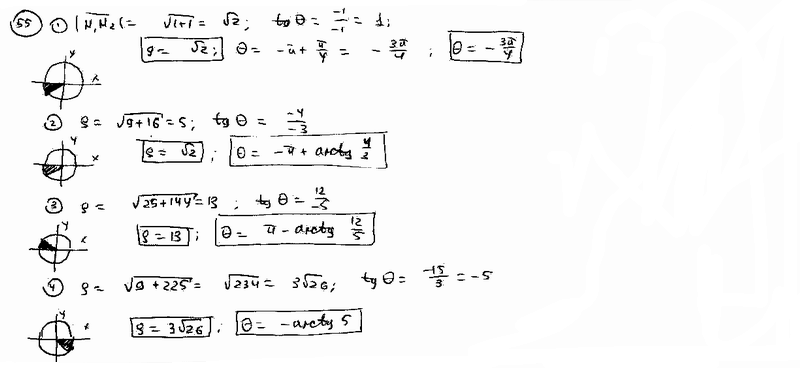 55 1 |M₁M₂| = √(1+1) = √2; tg θ = -1/-1 = 1;
ρ = √2; θ = -π + π/4 = -3π/4; θ = -3π/4
y
x
2 ρ = √(9+16) = 5; tg θ = -4/-3
y
x
ρ = √2; θ = -π + arctg 4/3
3 ρ = √(25+144) = 13; tg θ = 12/5
y
x
ρ = 13; θ = π - arctg 12/5
4 ρ = √(9+225) = √234 = 3√26; tg θ = -15/3 = -5
y
x
ρ = 3√26; θ = -arctg 5